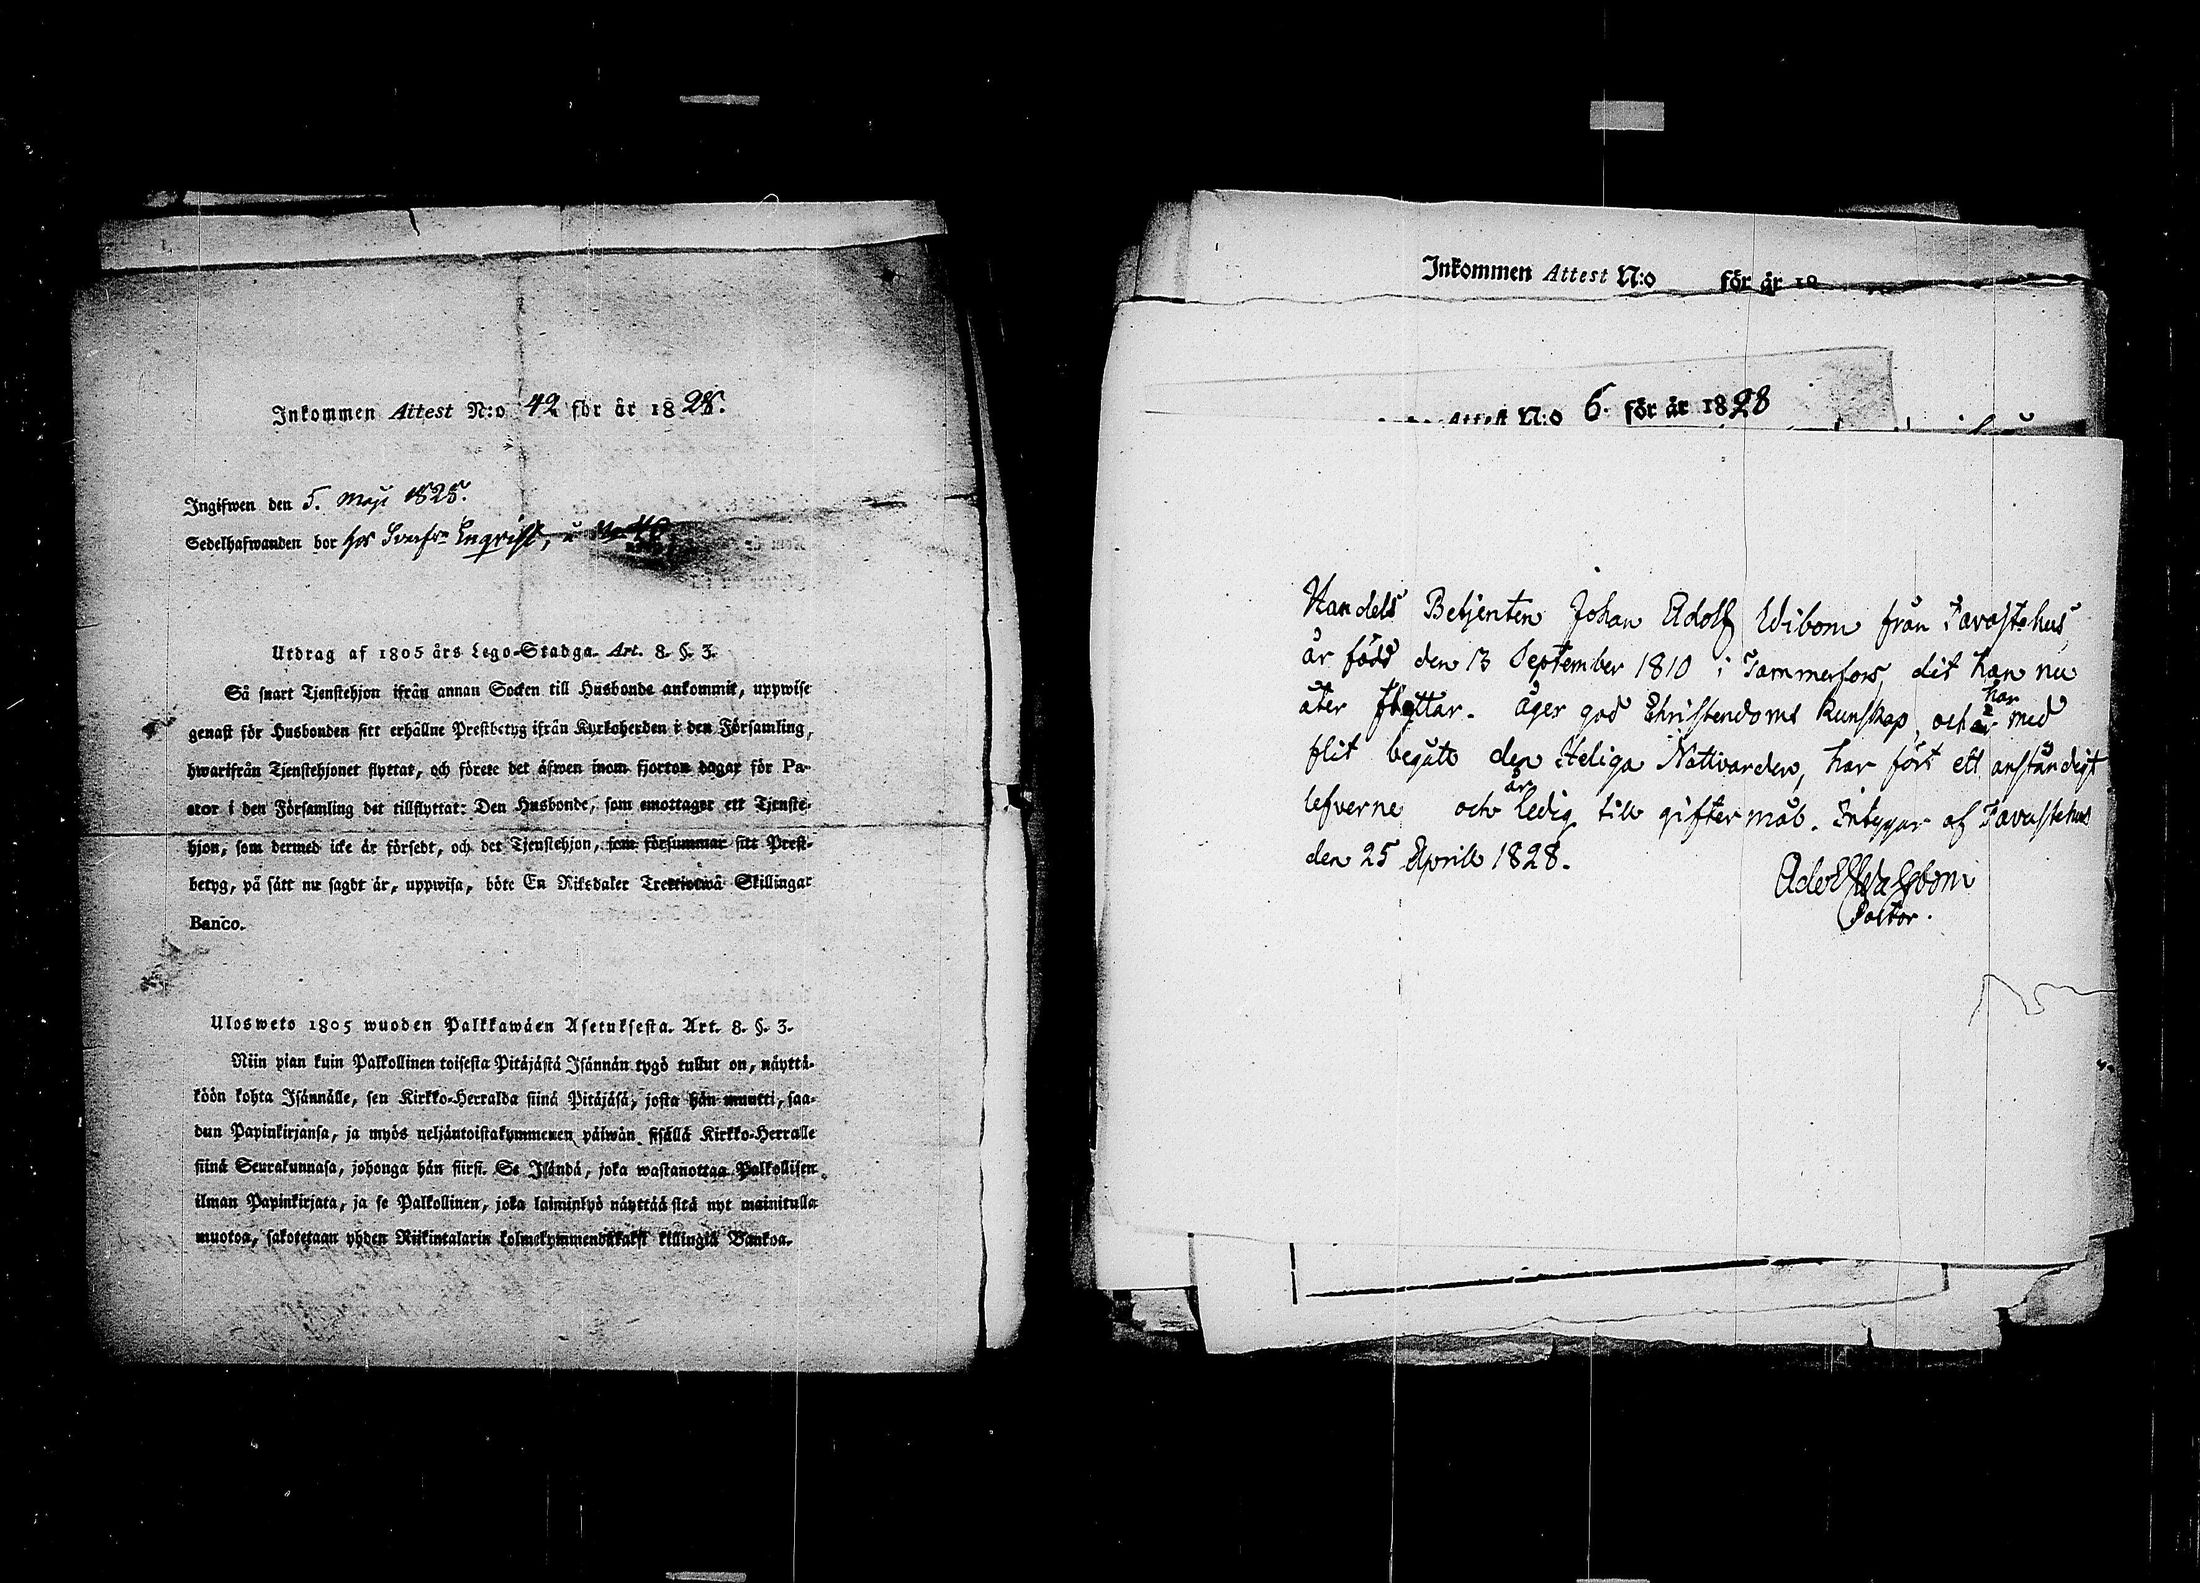 Inkommen Attest N:o 42 för år 1828.
Ingifwen den 5. Maji 1825.
Sedelhafwanden bor hos
Utdrag af 1805 års Lego-Stadga. Art. 8. §. 3.
Så snart Tjenstehjon ifrån annan Socken till Husbonde ankommit, uppwise
genast för Husbonden sitt erhållne Prestbetyg ifrån Kyrkoherden i den Församling,
hwarifrån Tjenstehjonet flyttat, och förete det äfwen inom fjorton dagar för Pa-
stor i den Församling det tillflyttat: Den Husbonde, som emottager ett Tjenste-
hjon, som dermed icke är försedt, och det Tjenstehjon, som försummar sitt Prest-
betyg, på sätt nu sagdt är, uppwisa, böte En Riksdaler Trettiotwå Skillingar
Banco.
Ulosweto 1805 wuoden Palkkawäen Asetuksesta. Art. 8. §. 3.
Niin pian kuin Palkollinen toisesta Pitäjästä Isännän tygö tullut on, näyttä-
köön kohta Isännälle, sen Kirkko-Herralda siinä Pitäjäsä, josta hän muutti, saa-
dun Papinkirjansa, ja myös neljäntoistakymmenen päiwän sisällä Kirkko-Herralle
siinä Seurakunnasa, johonga hän siirsi. Se Isändä, joka wastanottaa Palkollisen
ilman Papinkirjata, ja se Palkollinen, joka laiminlyö näyttää sitä nyt mainitulla
muotoa, sakotetaan yhden Riikintalarin kolmekymmendäkaksi killingiä Bankoa.
Inkommen Attest N:o för år 18
Attest N:o 6. för år 1828
Handels Betjenten Johan Adolf Wibom från Tavastehus
är född den 13 September 1810 i Tammerfors, dit han nu
åter flyttar. äger god Christendoms Kunskap, och har med
flit begått den Heliga Nattvarden, har fört ett anständigt
lefverne och är ledig till giftermål. Intygar af Tavastehus
den 25 Aprill 1828.
Pastor.